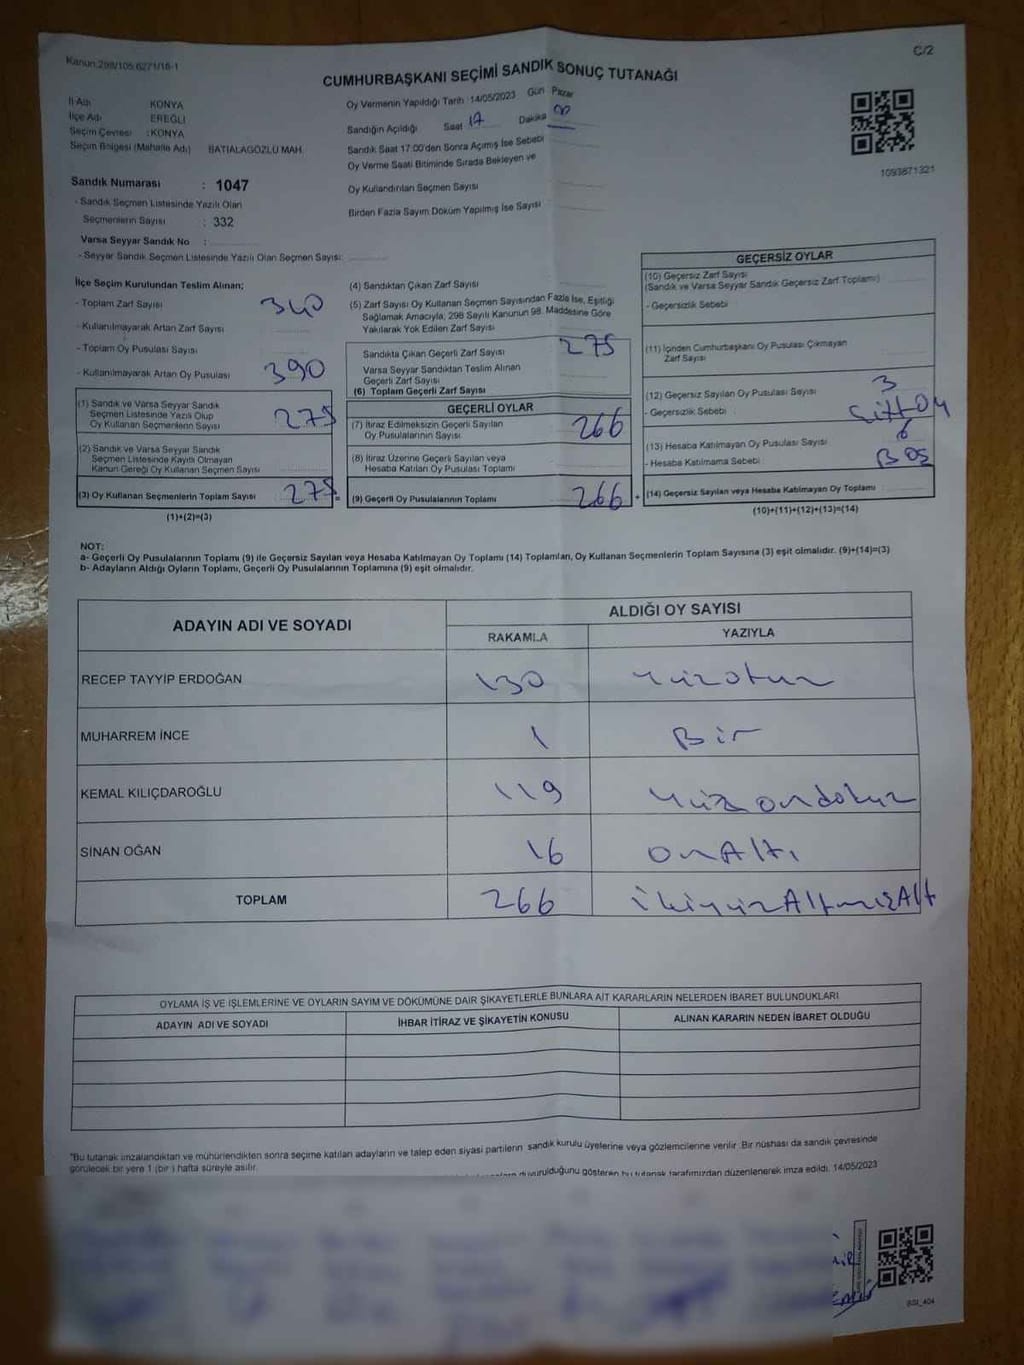 Kanun:298/105,6271/16-1
C/2
CUMHURBAŞKANI SEÇİMİ SANDIK SONUÇ TUTANAĞI
İl Adı KONYA
İlçe Adı EREĞLİ
Seçim Çevresi : KONYA
Seçim Bölgesi (Mahalle Adı) BATIALAGÖZLÜ MAH.
Oy Vermenin Yapıldığı Tarih : 14/05/2023 Gün Pazar
Sandığın Açıldığı Saat 17 Dakika 00
Sandık Saat 17:00'den Sonra Açımış İse Sebebi
Oy Verme Saati Bitiminde Sırada Bekleyen ve
Oy Kullandırılan Seçmen Sayısı
Birden Fazla Sayım Döküm Yapılmış İse Sayısı
1093871321
Sandık Numarası : 1047
- Sandık Seçmen Listesinde Yazılı Olan
Seçmenlerin Sayısı : 332
Varsa Seyyar Sandık No :
- Seyyar Sandık Seçmen Listesinde Yazılı Olan Seçmen Sayısı:
İlçe Seçim Kurulundan Teslim Alınan;
- Toplam Zarf Sayısı 340
- Kullanılmayarak Artan Zarf Sayısı
- Toplam Oy Pusulası Sayısı
- Kullanılmayarak Artan Oy Pusulası 390
(1) Sandık ve Varsa Seyyar Sandık
Seçmen Listesinde Yazılı Olup
Oy Kullanan Seçmenlerin Sayısı 275
(2) Sandık ve Varsa Seyyar Sandık
Seçmen Listesinde Kayıtlı Olmayan
Kanun Gereği Oy Kullanan Seçmen Sayısı
(3) Oy Kullanan Seçmenlerin Toplam Sayısı 275
(1)+(2)=(3)
(4) Sandıktan Çıkan Zarf Sayısı
(5) Zarf Sayısı Oy Kullanan Seçmen Sayısından Fazla İse, Eşitliği
Sağlamak Amacıyla; 298 Sayılı Kanunun 98. Maddesine Göre
Yakılarak Yok Edilen Zarf Sayısı
Sandıkta Çıkan Geçerli Zarf Sayısı 275
Varsa Seyyar Sandıktan Teslim Alınan
Geçerli Zarf Sayısı
(6) Toplam Geçerli Zarf Sayısı
GEÇERLİ OYLAR
(7) İtiraz Edilmeksizin Geçerli Sayılan
Oy Pusulalarının Sayısı 266
(8) İtiraz Üzerine Geçerli Sayılan veya
Hesaba Katılan Oy Pusulası Toplamı
(9) Geçerli Oy Pusulalarının Toplamı 266
GEÇERSİZ OYLAR
(10) Geçersiz Zarf Sayısı
(Sandık ve Varsa Seyyar Sandık Geçersiz Zarf Toplamı)
- Geçersizlik Sebebi
(11) İçinden Cumhurbaşkanı Oy Pusulası Çıkmayan
Zarf Sayısı
(12) Geçersiz Sayılan Oy Pusulası Sayısı 3
- Geçersizlik Sebebi
(13) Hesaba Katılmayan Oy Pusulası Sayısı 6
- Hesaba Katılmama Sebebi Boş
+ (14) Geçersiz Sayılan veya Hesaba Katılmayan Oy Toplamı
(10)+(11)+(12)+(13)=(14)
NOT:
a- Geçerli Oy Pusulalarının Toplamı (9) ile Geçersiz Sayılan veya Hesaba Katılmayan Oy Toplamı (14) Toplamları, Oy Kullanan Seçmenlerin Toplam Sayısına (3) eşit olmalıdır. (9)+(14)=(3)
b- Adayların Aldığı Oyların Toplamı, Geçerli Oy Pusulalarının Toplamına (9) eşit olmalıdır.
ADAYIN ADI VE SOYADI
ALDIĞI OY SAYISI
RAKAMLA YAZIYLA
RECEP TAYYİP ERDOĞAN 130 Yüzotuz
MUHARREM İNCE 1 Bir
KEMAL KILIÇDAROĞLU 119 Yüzondokuz
SİNAN OĞAN 16 onAltı
TOPLAM 266 ikiyüzAltmışAlt
OYLAMA İŞ VE İŞLEMLERİNE VE OYLARIN SAYIM VE DÖKÜMÜNE DAİR ŞİKAYETLERLE BUNLARA AİT KARARLARIN NELERDEN İBARET BULUNDUKLARI
ADAYIN ADI VE SOYADI İHBAR İTİRAZ VE ŞİKAYETİN KONUSU ALINAN KARARIN NEDEN İBARET OLDUĞU
"Bu tutanak imzalandıktan ve mühürlendikten sonra seçime katılan adayların ve talep eden siyasi partilerin sandık kurulu üyelerine veya gözlemcilerine verilir. Bir nüshası da sandık çevresinde
görülecek bir yere 1 (bir) hafta süreyle asılır.
duyurulduğunu gösteren bu tutanak tarafımızdan düzenlenerek imza edildi. 14/05/2023